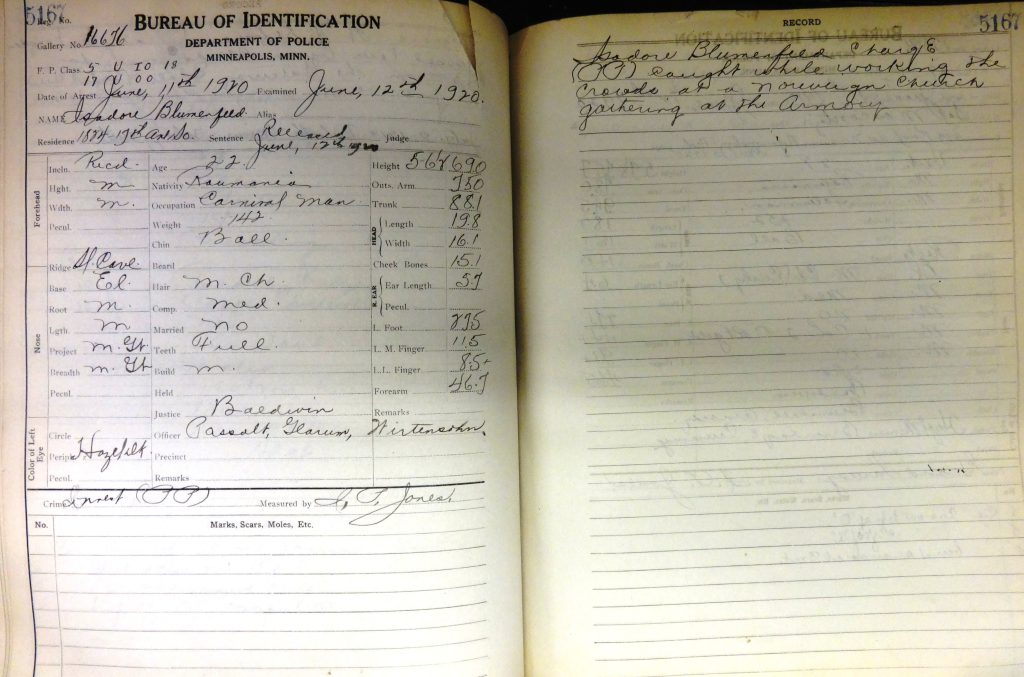 5167
Reg. No.
BUREAU OF IDENTIFICATION
Gallery No. 16676
DEPARTMENT OF POLICE
MINNEAPOLIS, MINN.
F. P. Class 5 U IO 18
17 U OO
Date of Arrest June, 11th 1920 Examined June, 12th 1920.
NAME Isadore Blumenfeld Alias
Residence 1824 19th Ave So. Sentence Received June, 12th 1920 Judge
Forehead
Incln. Recd. Age 22 Height 5 6 7/8 1690
Hght. m Nativity Roumania Outs. Arm. 750
Wdth. m. Occupation Carnival Man Trunk 881
Pecul. Weight 142 HEAD Length 19.8
Chin Ball. Width 16.1
Ridge Beard Cheek Bones 15.1
Nose
Base El. Hair m. Ch. R. EAR Ear Length 5.7
Root m. Comp. med. Pecul.
Lgth. m Married no L. Foot 275
Project m. Gt. Teeth Full. L. M. Finger 11.5
Breadth m. Gt Build m. L.L. Finger 8.5
Pecul. Held Forearm 46.7
Justice Baldwin Remarks
Color of Left Eye
Circle Officer Passalt, Glarum, Wirtensohn.
Periph. Precinct
Pecul. Remarks
Crime (PP) Measured by Jones.
No. Marks, Scars, Moles, Etc.
RECORD
5167
Isadore Blumenfeld Charge
(PP) Caught while working the
Crowds at a Norweign Church
gathering at the Armory